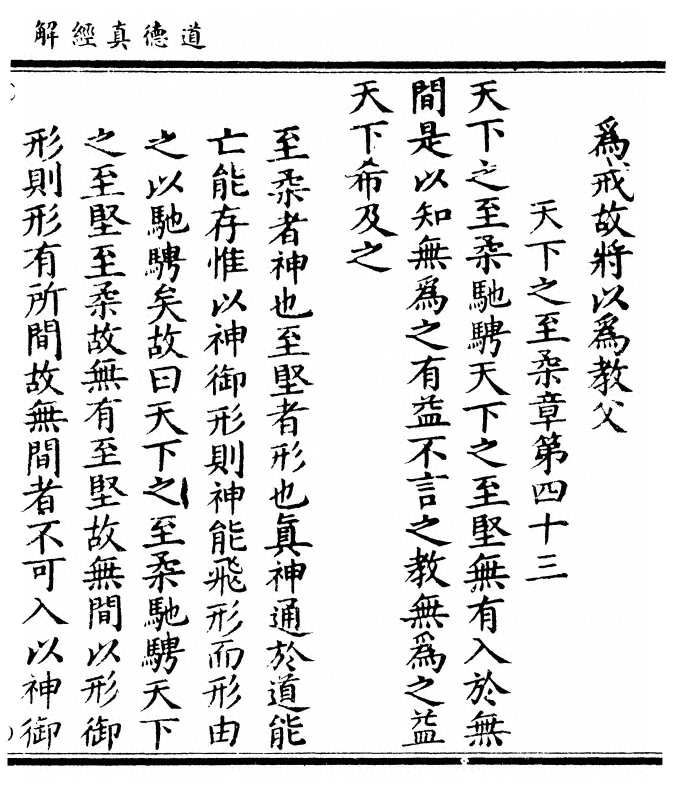 道德真經解
爲戒故將以爲教父
天下之至柔章第四十三
天下之至柔馳騁天下之至堅無有入於無
間是以知無爲之有益不言之教無爲之益
天下希及之
至柔者神也至堅者形也真神通於道能
亡能存惟以神御形則神能飛形而形由
之以馳騁矣故曰天下之至柔馳騁天下
之至堅至柔故無有至堅故無間以形御
形則形有所間故無間者不可入以神御